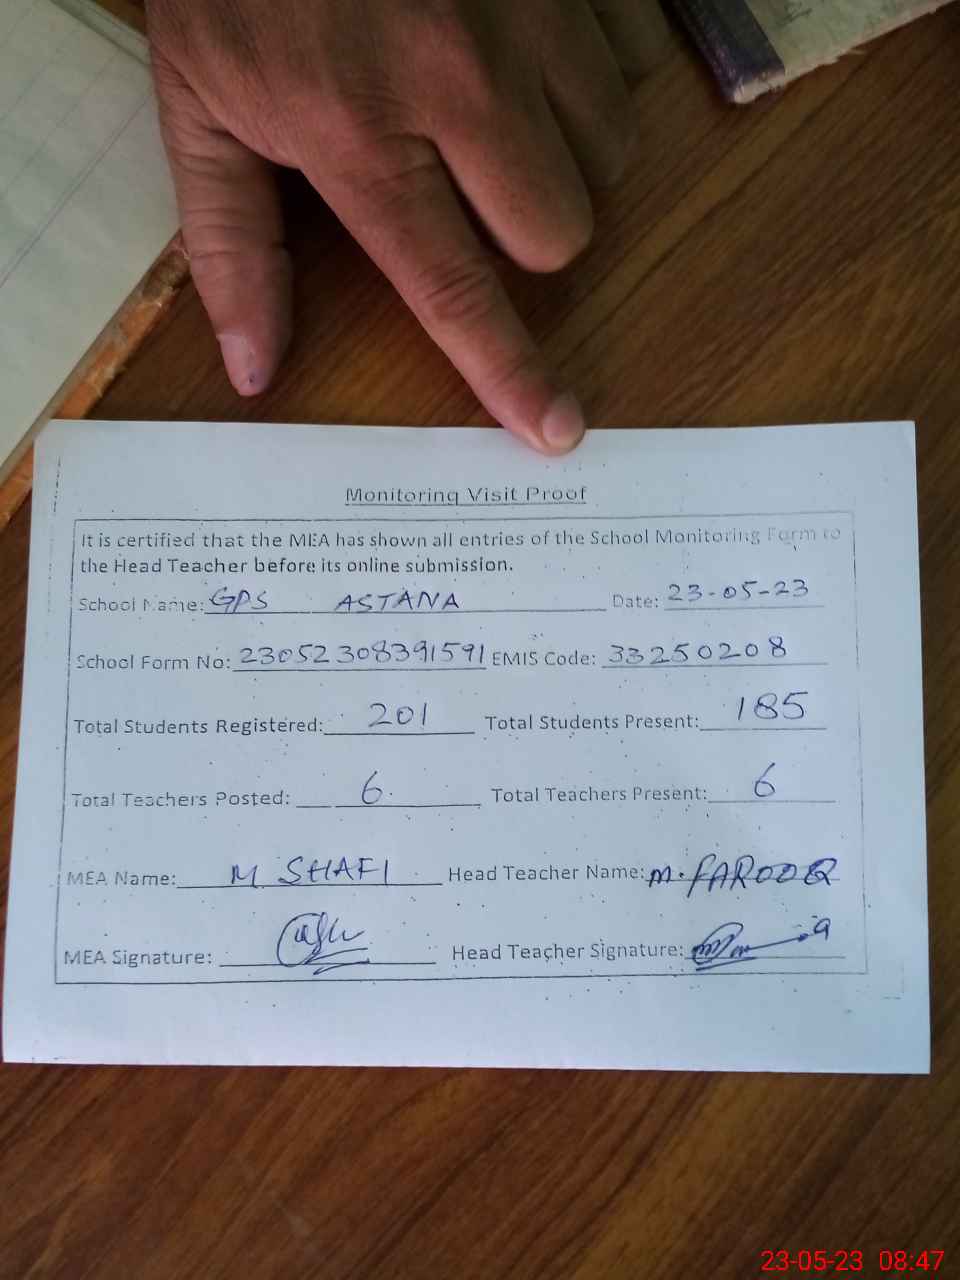 Monitoring Visit Proof
It is certified that the MEA has shown all entries of the School Monitoring Form to
the Head Teacher before its online submission.
School Name: GPS ASTANA Date: 23-05-23
School Form No: 23052308391591 EMIS Code: 33250208
Total Students Registered: 201 Total Students Present: 185
Total Teachers Posted: 6 Total Teachers Present: 6
MEA Name: M SHAFI Head Teacher Name: M. FAROOQ
MEA Signature: Head Teacher Signature:
23-05-23 08:47